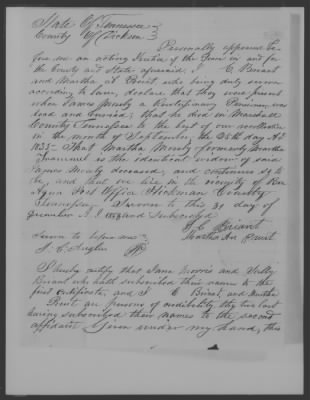 State Of Tennessee
County Of Dickson
Personally appeared be
fore me an acting Justice of the Peace in and for
the County and State aforesaid, J E Briant
and Martha An Pruit who being duly sworn
according to law, declare that they were present
when James Mosely a Revolutionary Pensioner was
dead and buried; that he died in Marshall
County Tennessee to the best of our recollection
in the month of September, the 25th day A.D.
1835 - That Martha Mosely formerly Martha
Trammel is the identical widow of said
James Mosely deceased, and continues so to
be, and that she live in the vicinity of Bon
Aqua Post Office Hickman County
Tennessee. Sworn to this 31 day of
December A. D. 1853 and subscribed
J E Briant
Sworn to before me Martha An Pruit
JP
I hereby certify that Jane Morris and Milly
Briant who hath subscribed their names to the
first certificate, and J E Briant, and Martha
Pruit are persons of credibility, the two last
having subscribed their names to the second
affidavit Given under my hand, this